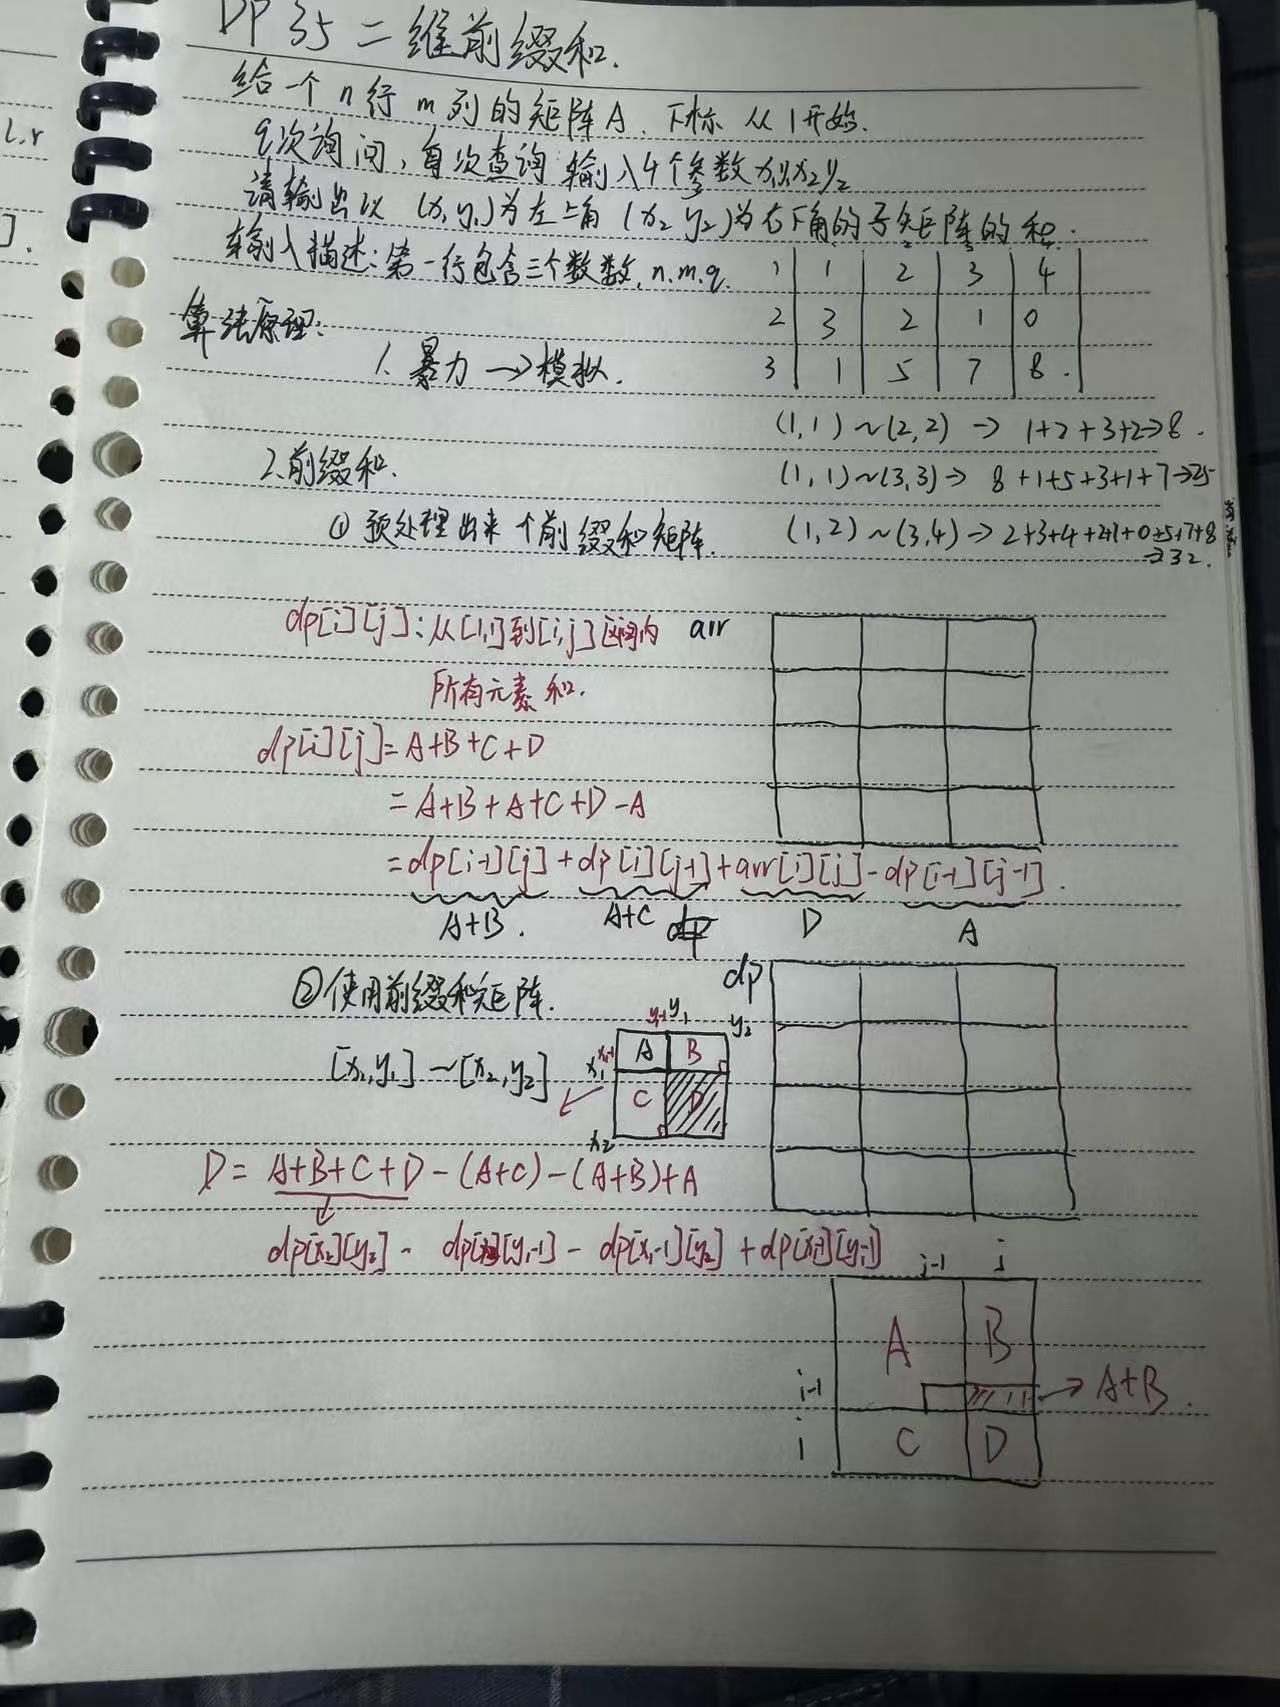 DP35 二维前缀和.
给一个n行m列的矩阵A,下标从1开始.
q次询问,每次查询输入4个参数x₁y₁x₂y₂
请输出以(x₁y₁)为左上角(x₂ y₂)为右下角的子矩阵的和.
输入描述:第一行包含三个数数,n.m.q.
1 1 2 3 4
2 3 2 1 0
3 1 5 7 8.
算法原理:
1.暴力→模拟.
(1,1)~(2,2)→1+2+3+2→8.
2.前缀和.
(1,1)~(3,3)→8+1+5+3+1+7→25
①预处理出来个前缀和矩阵.
(1,2)~(3,4)→2+3+4+2+1+0+5+7+8
→32.
dp[i][j]:从[1,1]到[i,j]区间内
所有元素和.
arr
dp[i][j]=A+B+C+D
=A+B+A+C+D-A
=dp[i-1][j]+dp[i][j-1]+arr[i][j]-dp[i-1][j-1].
A+B. A+C D A
②使用前缀和矩阵.
dp
y₁-1 y₁ y₂
x₁-1 A B
x₁
[x₁,y₁]~[x₂,y₂]
C D
x₂
D=A+B+C+D-(A+C)-(A+B)+A
dp[x₂][y₂]-dp[x₂][y₁-1]-dp[x₁-1][y₂]+dp[x₁-1][y₁-1]
j-1 j
A B
i-1 →A+B.
i C D
L,r
].